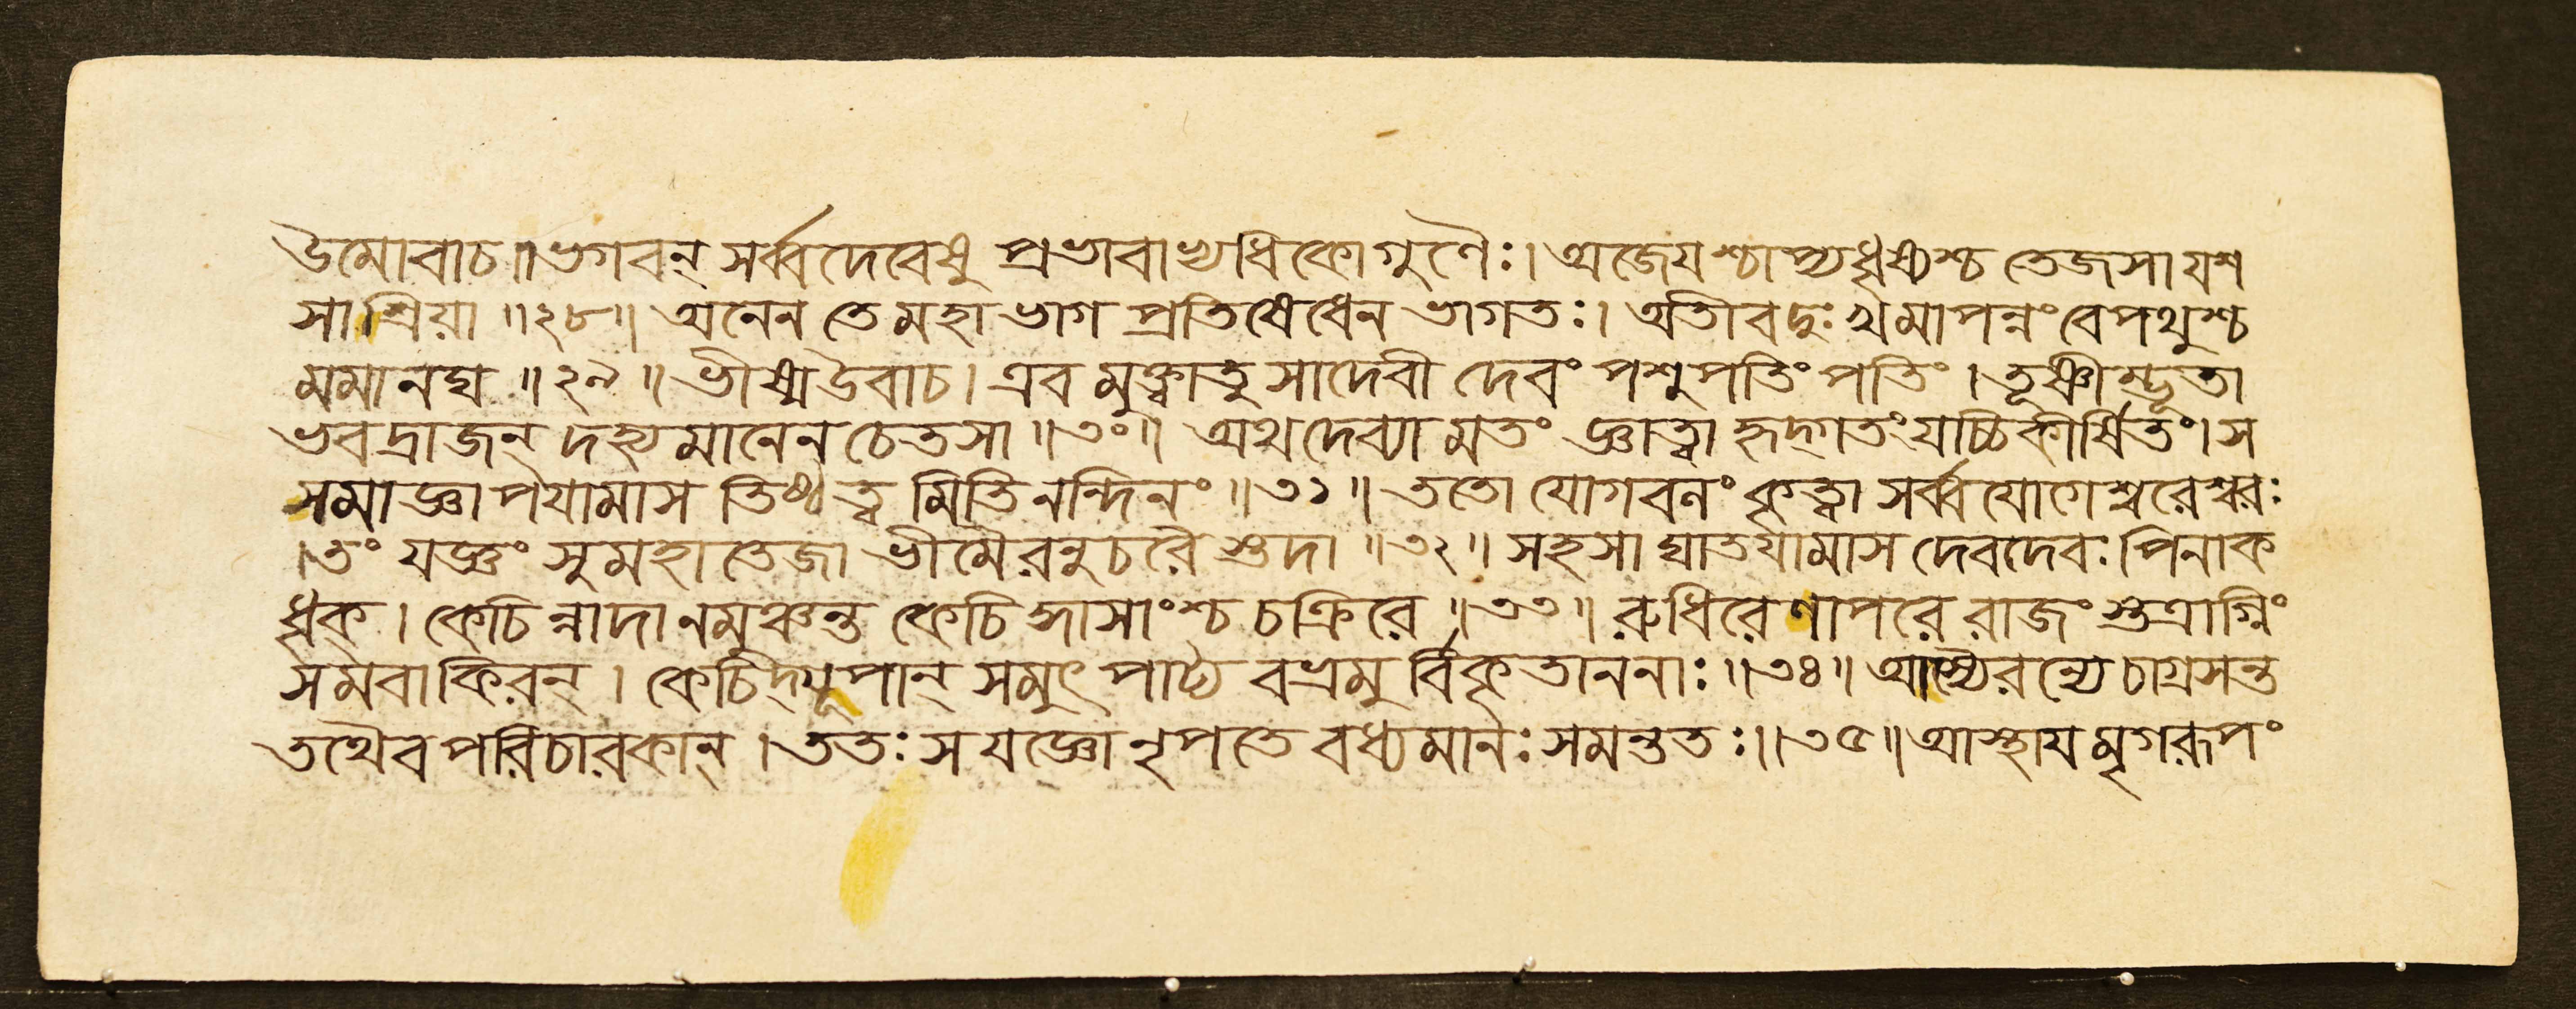 উমোবাচ॥ভগবন্ সর্ব্বদেবেষু প্রভাবাভ্যধিকোগুণৈঃ।অজেযশ্চাপ্যধৃষ্যশ্চ তেজসাযশ
সাশ্রিয়া॥২৮॥ অনেন তে মহাভাগ প্রতিষেধেন ভাগতঃ। অতীবদুঃখমাপন্নং বেপথুশ্চ
মমানঘ॥২৯॥ ভীষ্মউবাচ। এবমুক্ত্বাতু সাদেবী দেবং পশুপতিং পতিং। তূষ্ণীম্ভূতা
ভবদ্রাজন্ দহ্যমানেন চেতসা॥৩০॥ অথদেব্যামতং জ্ঞাত্বা হৃদ্গতংযচ্চিকীর্ষিতং। স
সমাজ্ঞাপযামাস তিষ্ঠত্বমিতিনন্দিনং॥৩১॥ ততো যোগবলং কৃত্বা সর্ব্বযোগেশ্বরেশ্বরঃ
।তং যজ্ঞং সুমহাতেজা ভীমৈরনুচরৈ স্তদা॥৩২॥ সহসা ঘাতযামাস দেবদেবঃ পিনাক
ধৃক। কেচিন্নাদানমুঞ্চন্ত কেচিদ্ধাসাংশ্চ চক্রিরে॥৩৩॥ রুধিরেণাপরে রাজং স্তত্রাগ্নিং
সমবাকিরন্। কেচিদ্যূপান্ সমুৎপাট্য বভ্রমুর্বিকৃতাননাঃ॥৩৪॥ আস্যৈরন্যেচাগ্রসন্ত
তথৈব পরিচারকান্। ততঃ স যজ্ঞো নৃপতে বধ্যমানঃ সমন্ততঃ॥৩৫॥ আস্থাযমৃগরূপং